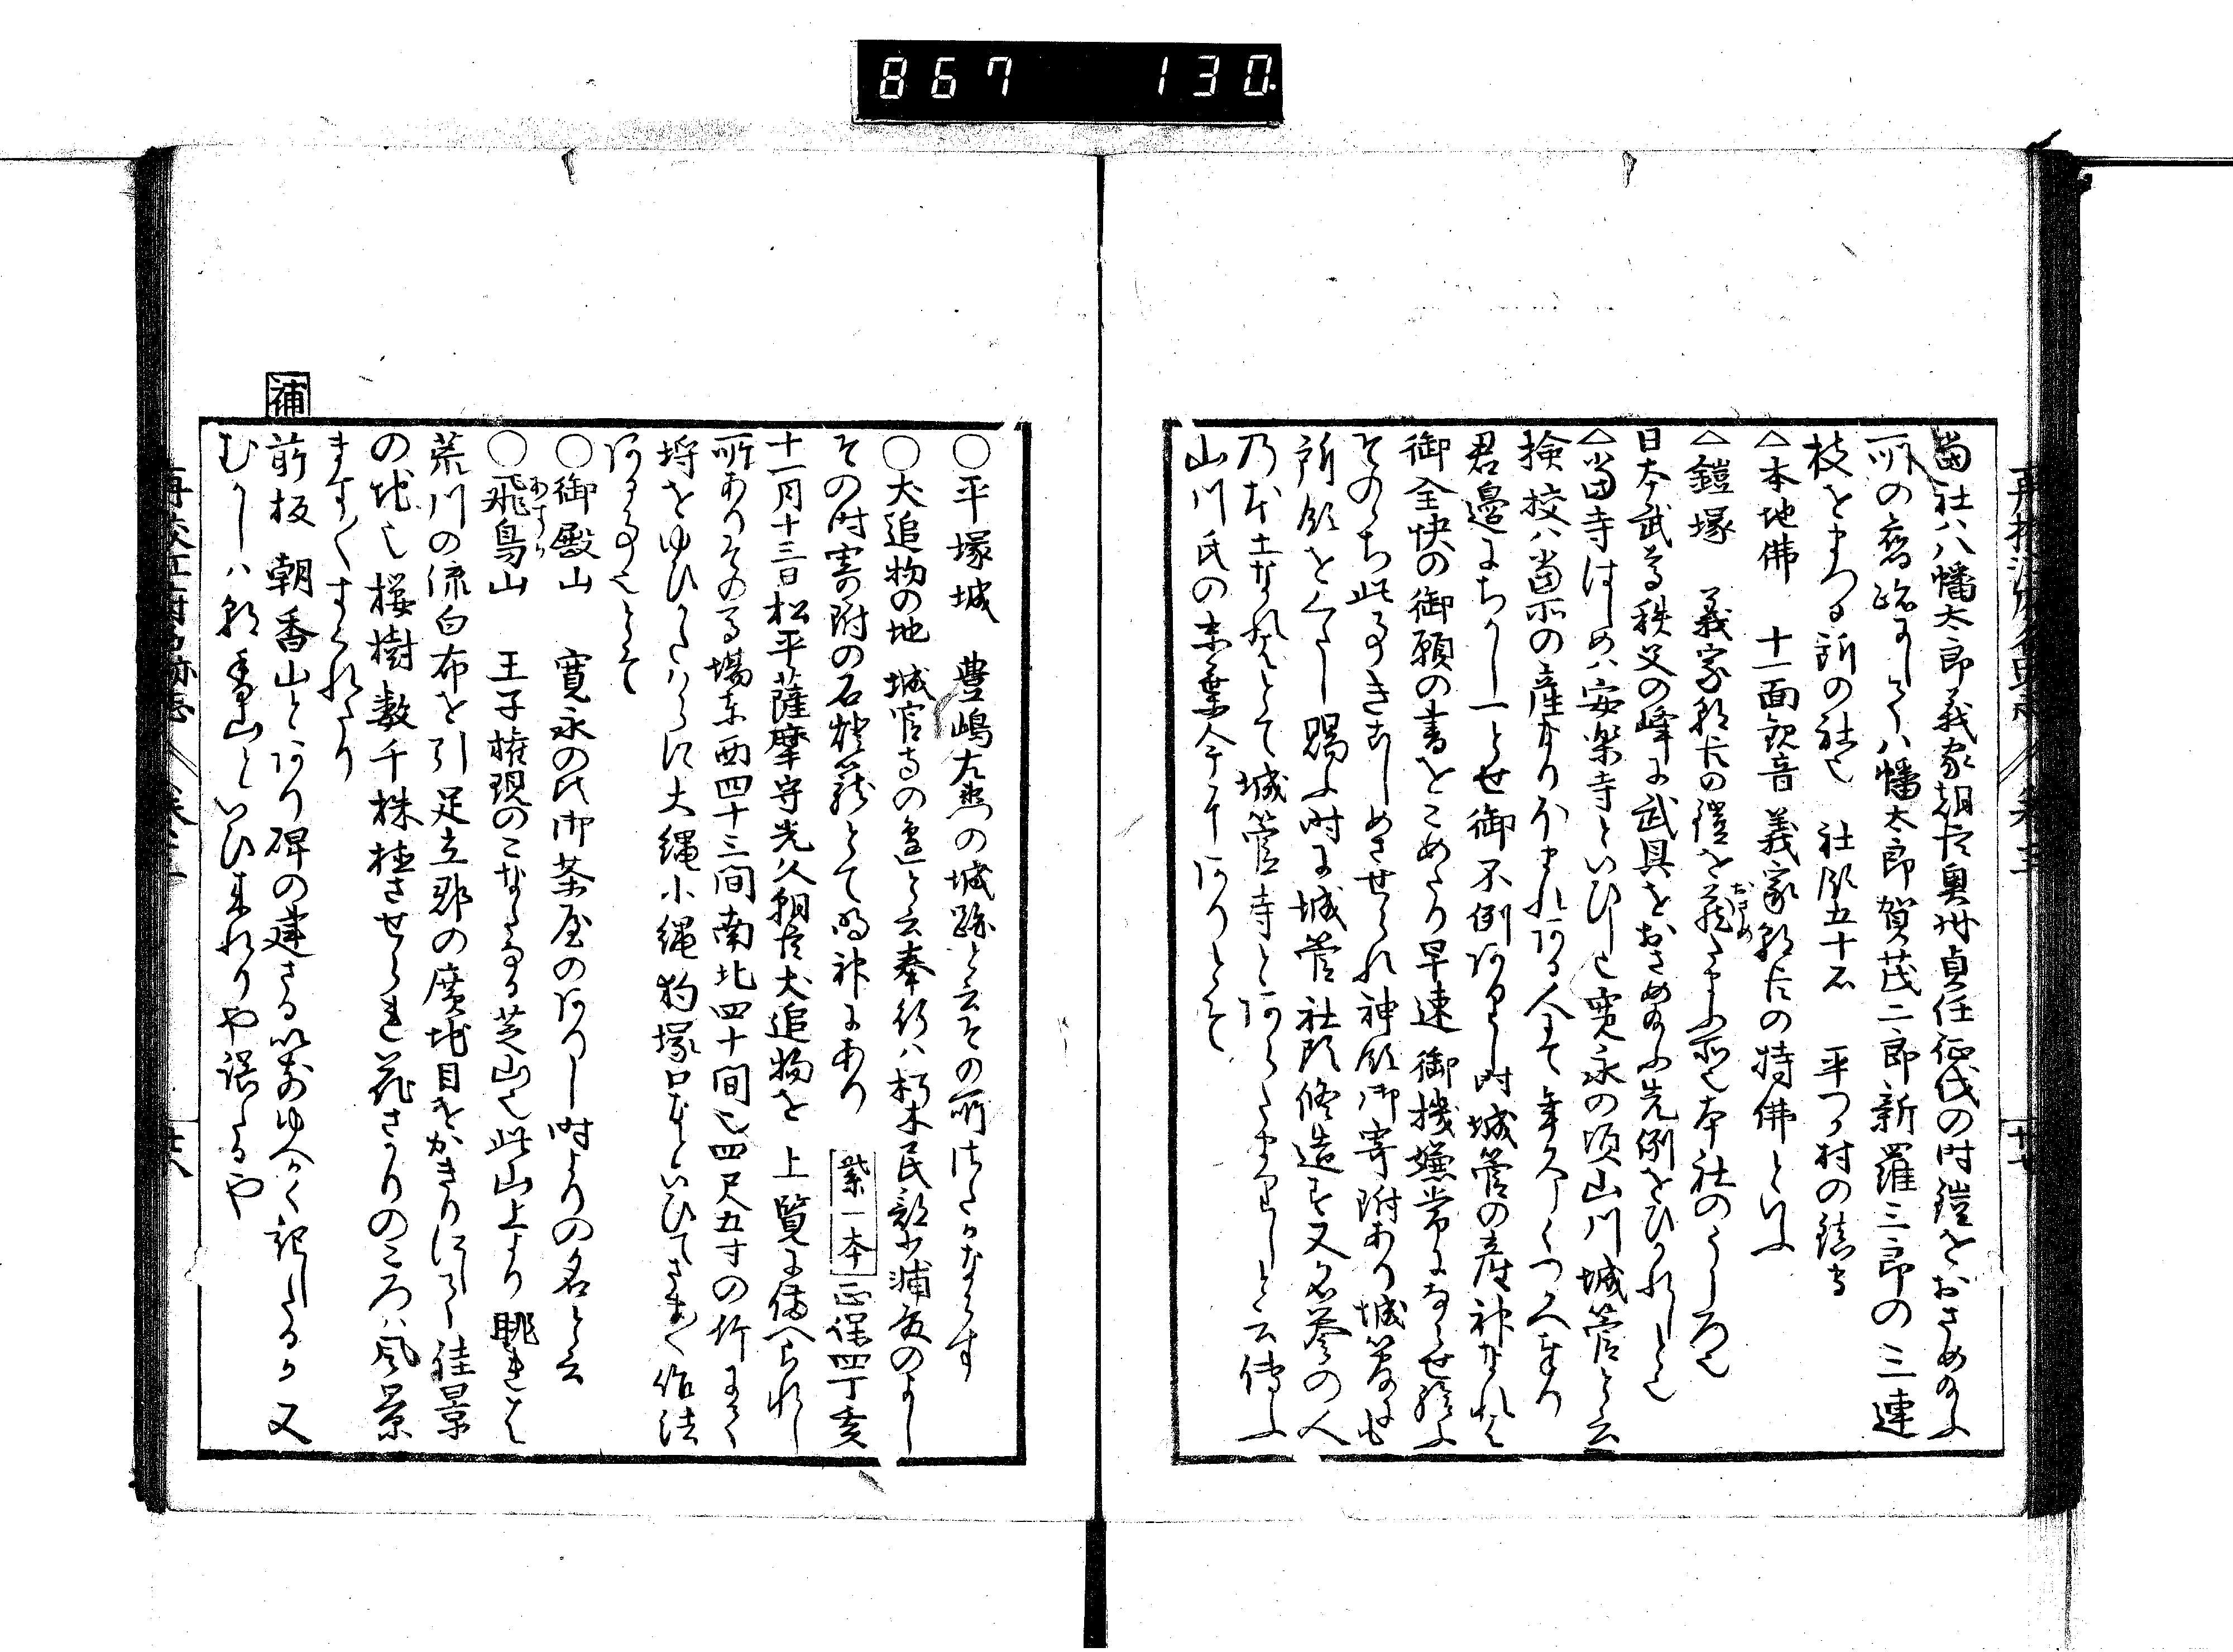 867 130
當社八八幡太郎義家朝臣奥州貞任征伐の時鎧をおさめ給ふ
所の舊跡にして八幡太郎賀茂二郎新羅三郎の三連
枝をまつる所の社也 社領五十石 平つか村の鎮守
△本地佛 十一面観音義家朝臣の持佛といふ
△鎧塚 義家朝臣の鎧を蔵たまふ所也本社のうしろ也
おさめ
日本武尊秩父の峰に武具をおさめ給ふ先例をひかれしと也
△當寺はしめハ安楽寺といひし也寛永の頃山川城管と云
検校ハ當所の産なりかまれある人にて年久しくつかへ奉り
君邊にちかし一とせ御不例ありし时城管の産神なれは
御全快の御願の書をこめたり早速御機嫌常にならせ給ふ
そのゝち此事きこしめさせられ神領御寄附あり城管にも
所領をくたし賜ふ时に城管社頭修造す又名誉の人
乃本土なれはとて城管寺とあらたまりしと云傳ふ
山川氏の末葉今にありとそ
○平塚城 豊嶋左衛門の城跡と云その所つまひらかならす
○犬追物の地 城官寺の邊と云奉行ハ朽木民部少浦殿のよし
その时寄附の石燈籠とて明神にあり 紫一本 正保四丁亥
十一月十三日松平薩摩守光久朝臣犬追物を 上覧に備へられし
所ありその馬場東西四十三間南北四十間也四尺五寸の竹にて
埒をゆひかたハらに大縄小縄狗塚口なといひてさま〱作法
ある事也とそ
○御殿山 寛永の比御茶屋のありし时よりの名と云
○飛鳥山 王子権現のこなたなる芝山也此山上より眺きは
あすか
荒川の流白布を引足立郡の廣地目をかきりにして佳景
の地也桜樹数千株植させられ花さかりのころハ風景
ます〱すくれたり
補
前板 朝香山とあり碑の建さる以前ゆへかく記したるか又
むかしハ朝香山といひ来れりや誤たるや